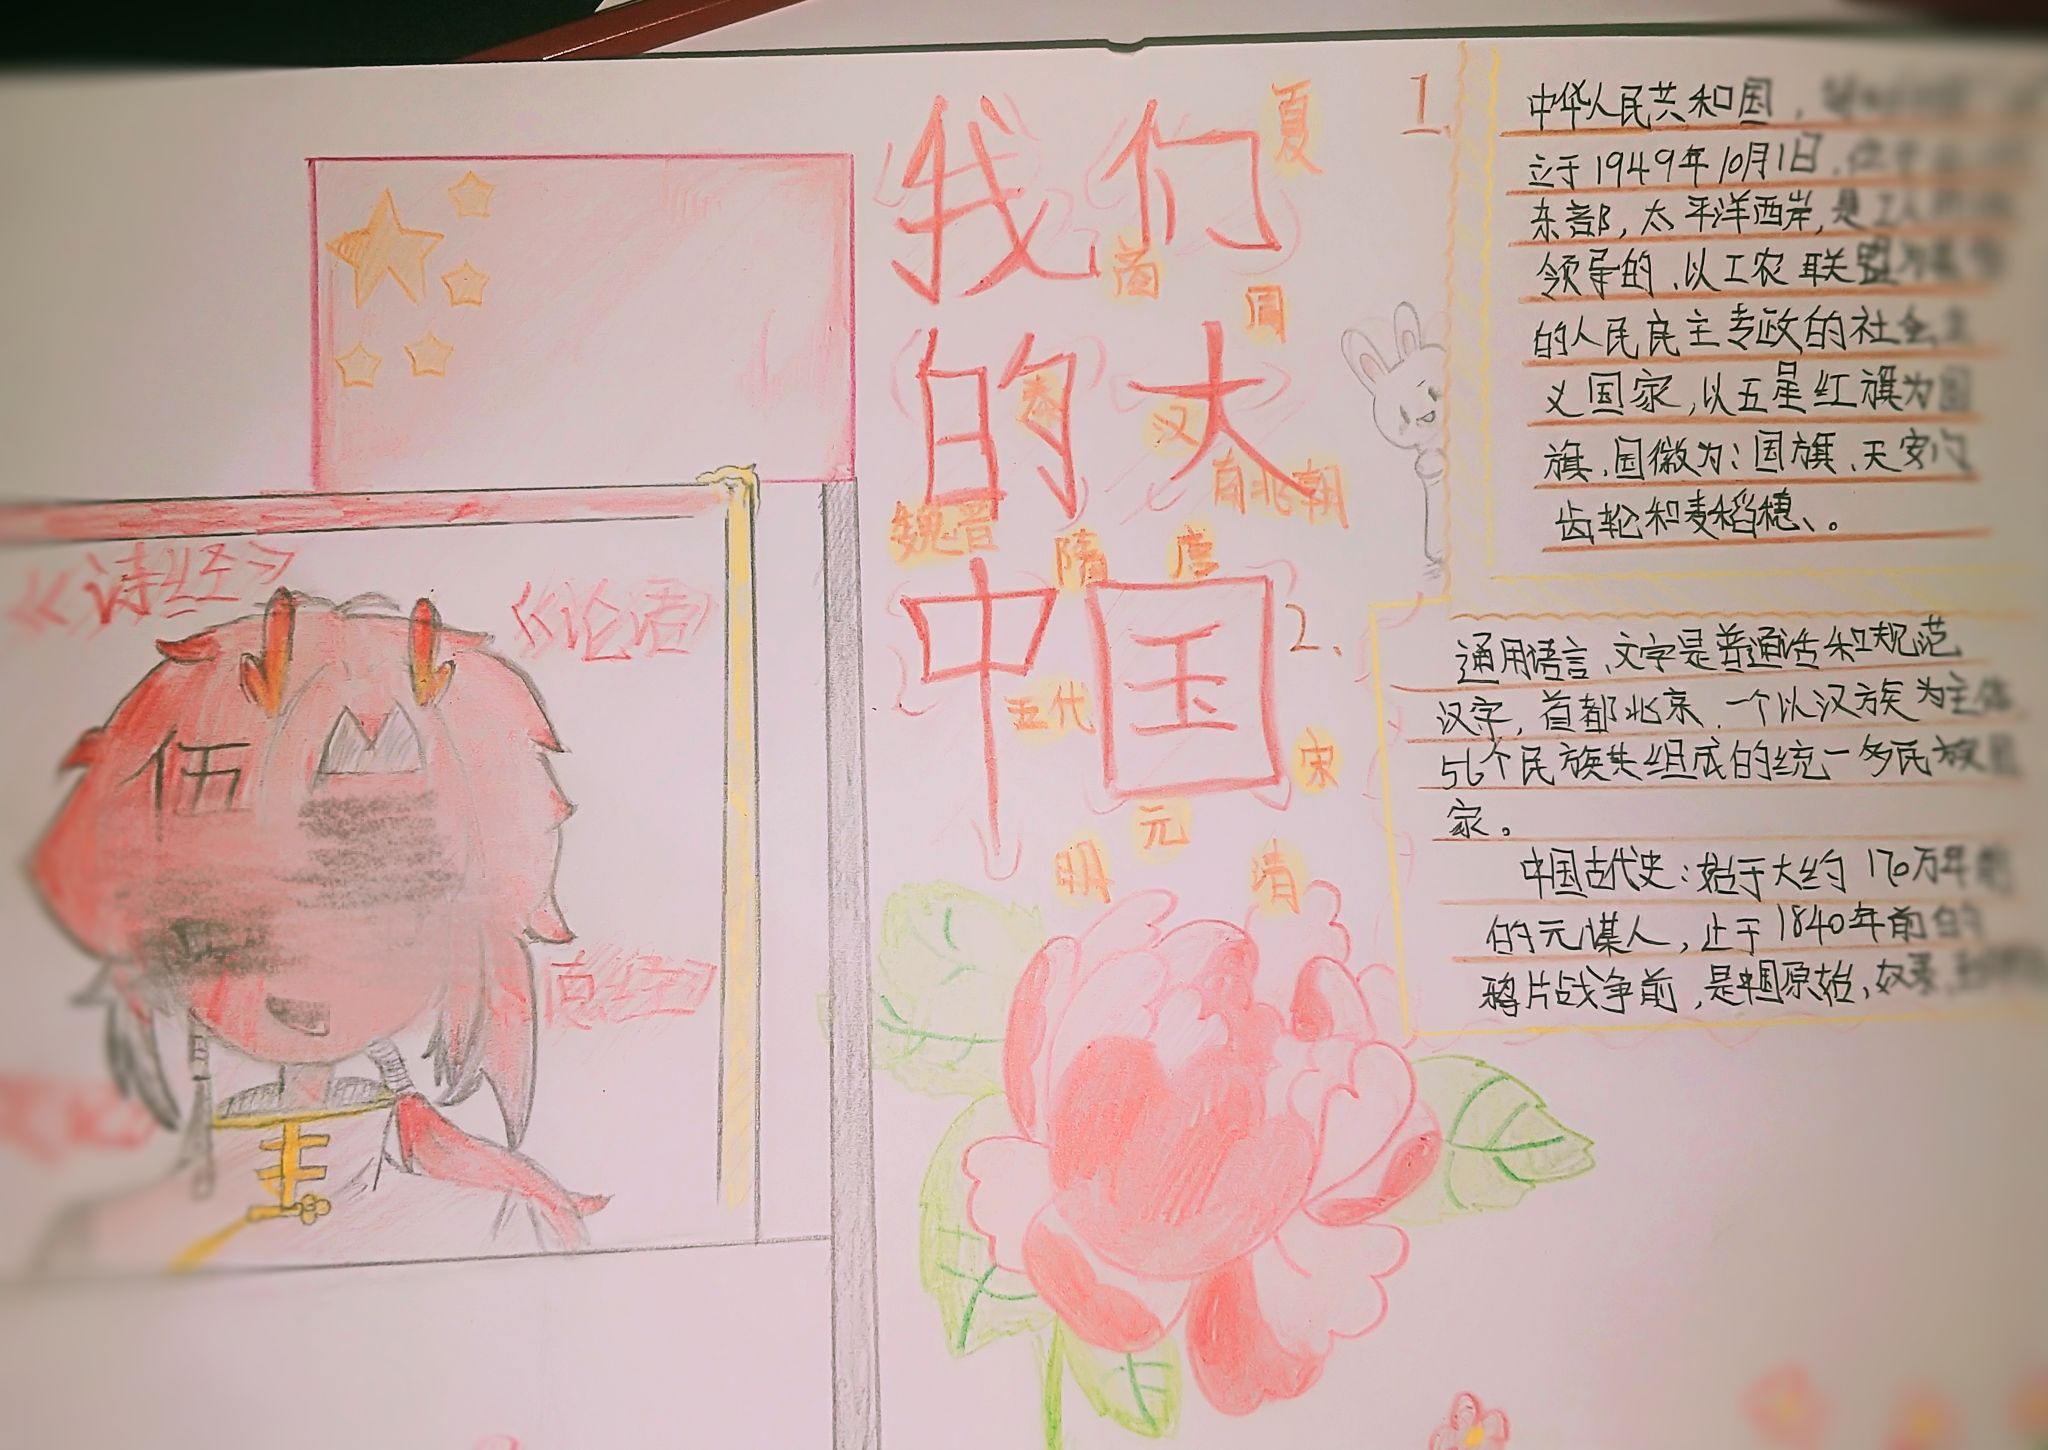 我们
的大
中国
夏
商
周
秦
汉
魏晋
南北朝
隋
唐
五代
宋
元
明
清
《诗经》
《论语》
伍
1.
中华人民共和国，
立于1949年10月1日，
东部，太平洋西岸，是工人
领导的、以工农联盟为
的人民民主专政的社会主
义国家，以五星红旗为国
旗、国徽为：国旗、天安门
齿轮和麦稻穗、。
2、
通用语言、文字是普通话和规范
汉字，首都北京，一个以汉族为主体
56个民族共组成的统一多民族国
家。
中国古代史：始于大约170万年前
的元谋人，止于1840年前的
鸦片战争前，是中国原始，奴隶，